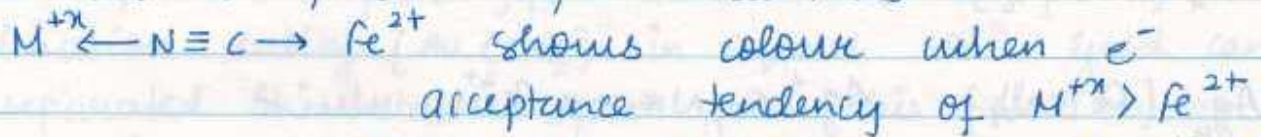 M⁺ˣ ← N ≡ C → Fe²⁺ shows colour when e⁻
acceptance tendency of M⁺ˣ > Fe²⁺